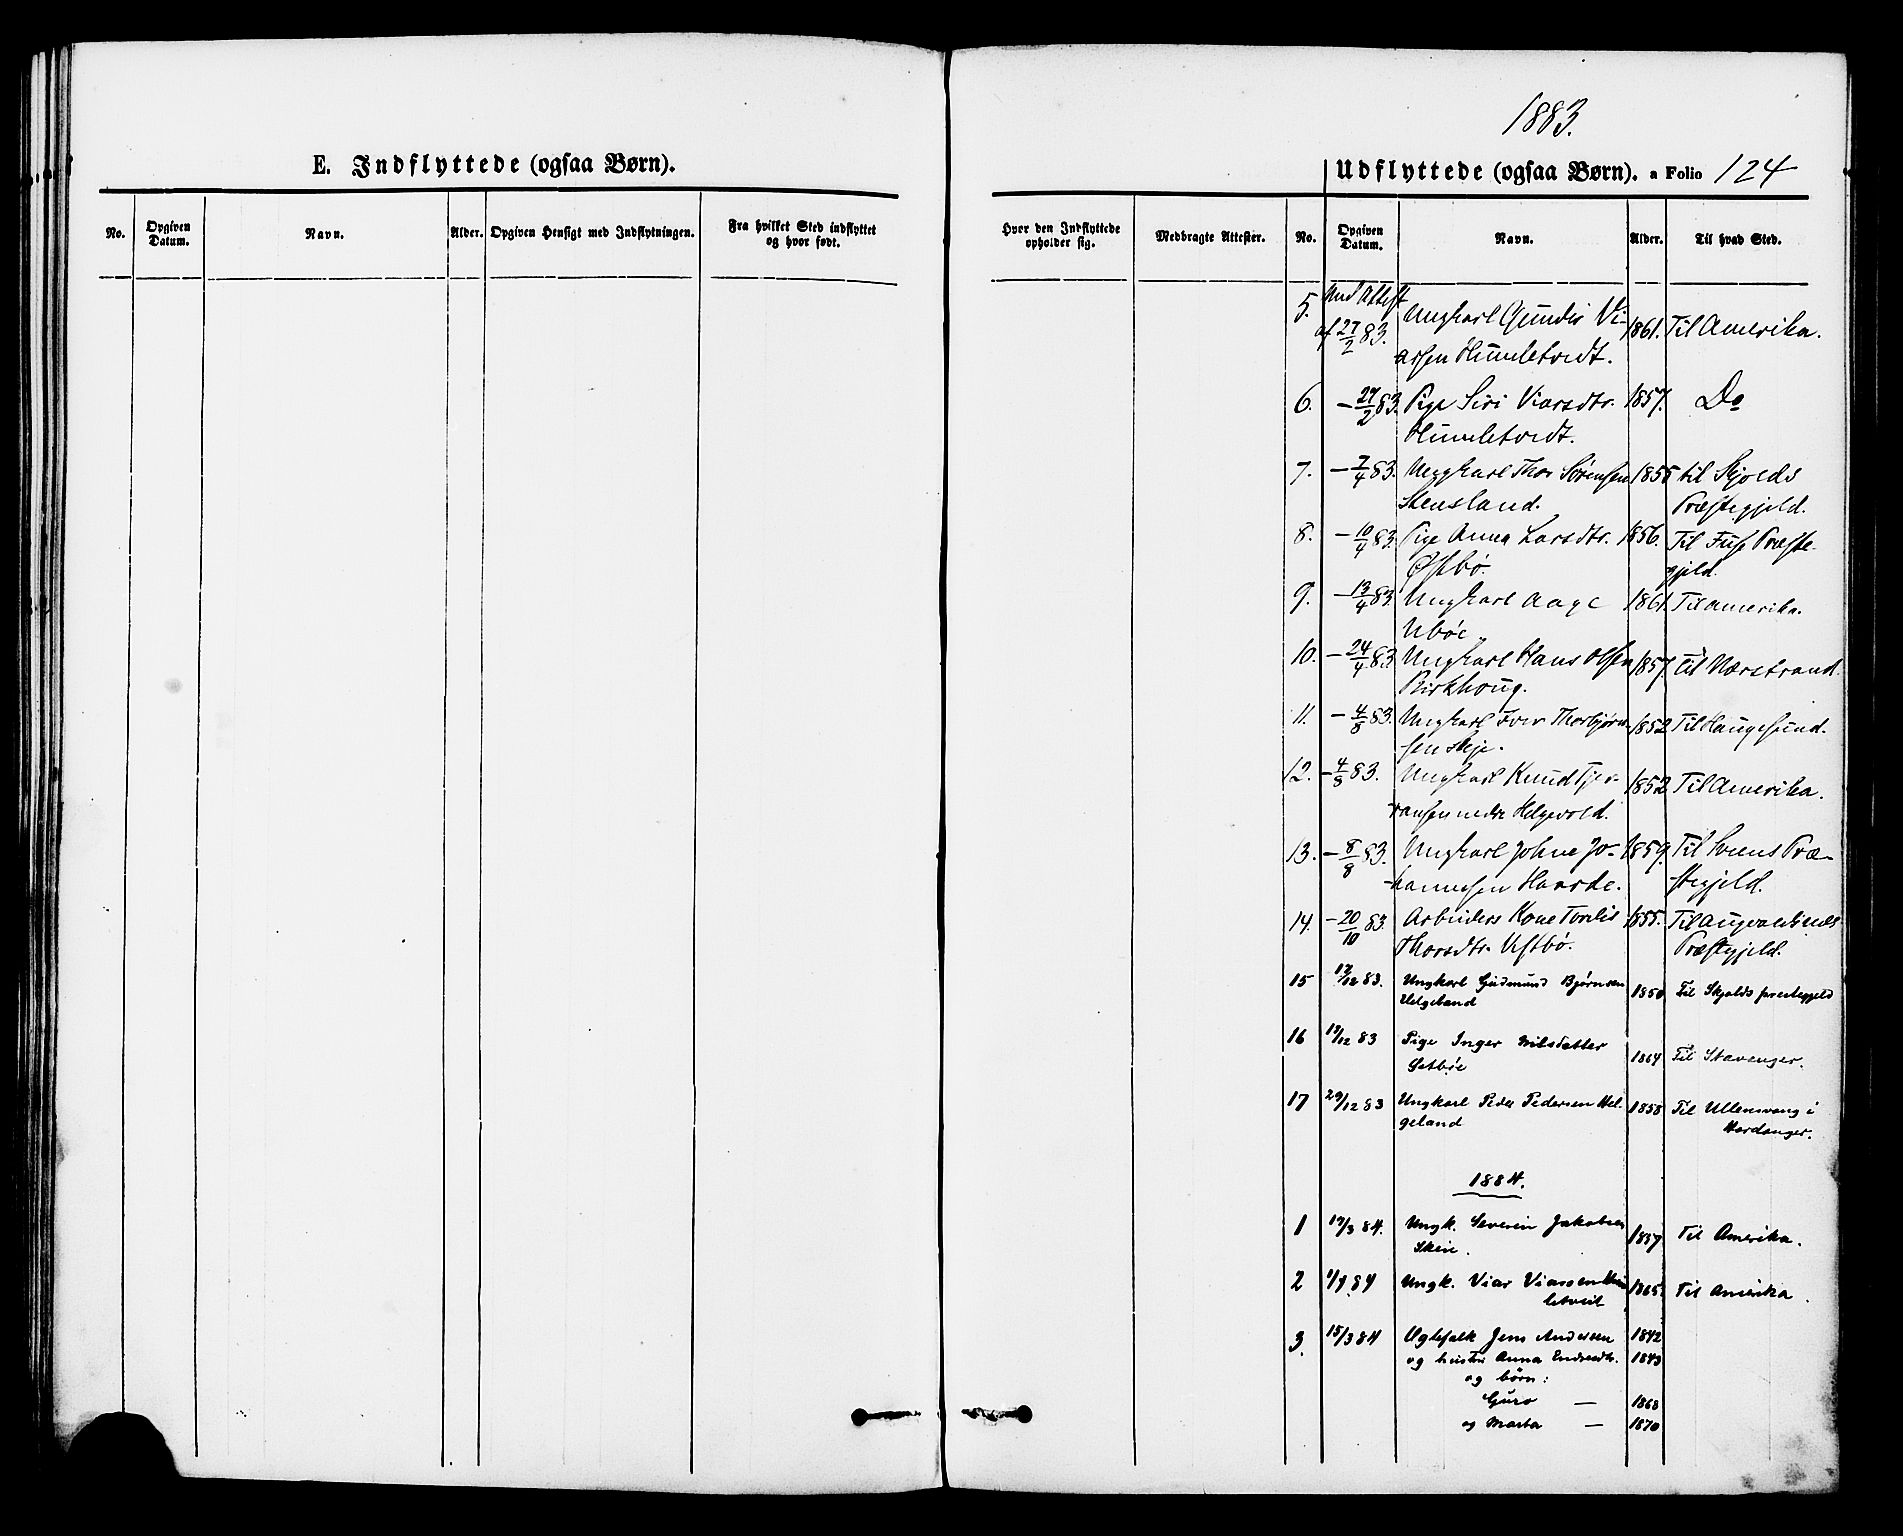 1883.
E. Indflyttede (ogsaa Børn).
Udflyttede (ogsaa Børn). a Folio 124
No.
Opgiven Datum.
Navn.
Alder.
Opgiven Hensigt med Indflytningen.
Fra hvilket Sted indflyttet og hvor født.
Hvor den Indflyttede opholder sig.
Medbragte Attester.
No.
Opgiven Datum.
Navn.
Alder.
Til hvad Sted.
5. Med Attest af 27/2 83. Ungkarl Gunder Vi- 1861. Til Amerika.
arsen Humletvedt.
6. – 27/2 83. Pige Siri Viarsdtr. 1857. Do
Humletvedt.
7. – 7/4 83. Ungkarl Thor Sørensen 1855 til Skjolds
Stensland. Præstegjeld.
8. – 10/4 83. Pige Anna Larsdtr. 1856. Til Fuse Præste-
Østbø. gjeld.
9. – 13/4 83. Ungkarl Aage 1861. Til Amerika.
Ubøe.
10. – 24/4 83. Ungkarl Hans Olsen 1857. til Nærstrand.
Birkhoug.
11. – 4/8 83. Ungkarl Iver Thorbjørn- 1852 Til Haugesund.
sen Skje.
12. – 4/8 83. Ungkarl Knud Tjer- 1852. Til Amerika.
ransen nedre Helgevold.
13. – 8/8 83. Ungkarl Johne Jo- 1859. Til Sveens Præ-
hannesen Haarde. stegjeld.
14. – 20/10 83. Arbeiders Kone Tordis 1855. Til Augvaldsnes
Thorsdtr. Vestbø. Præstegjeld.
15 17/12 83. Ungkarl Gudmund Bjørnsen 1850 Til Skjolds præstegjeld
Helgeland
16 19/12 83 Pige Inger Nilsdatter
Østbøe 1864 Til Stavanger.
17 29/12 83 Ungkarl Peder Pedersen Hel- 1858 Til Ullensvang i
geland Hardanger.
1884.
1 17/3 84. Ungk. Severin Jakobsen
Skeie. 1857 Til Amerika.
2 1/4 84 Ungk. Viar Viarsen Hum- 1865. Til Amerika.
letveit
3. 15/3 84 Egtefolk Jens Andersen 1842
og hustru Anna Endresdtr. 1843
og børn:
Guro — 1868
og Marta — 1870